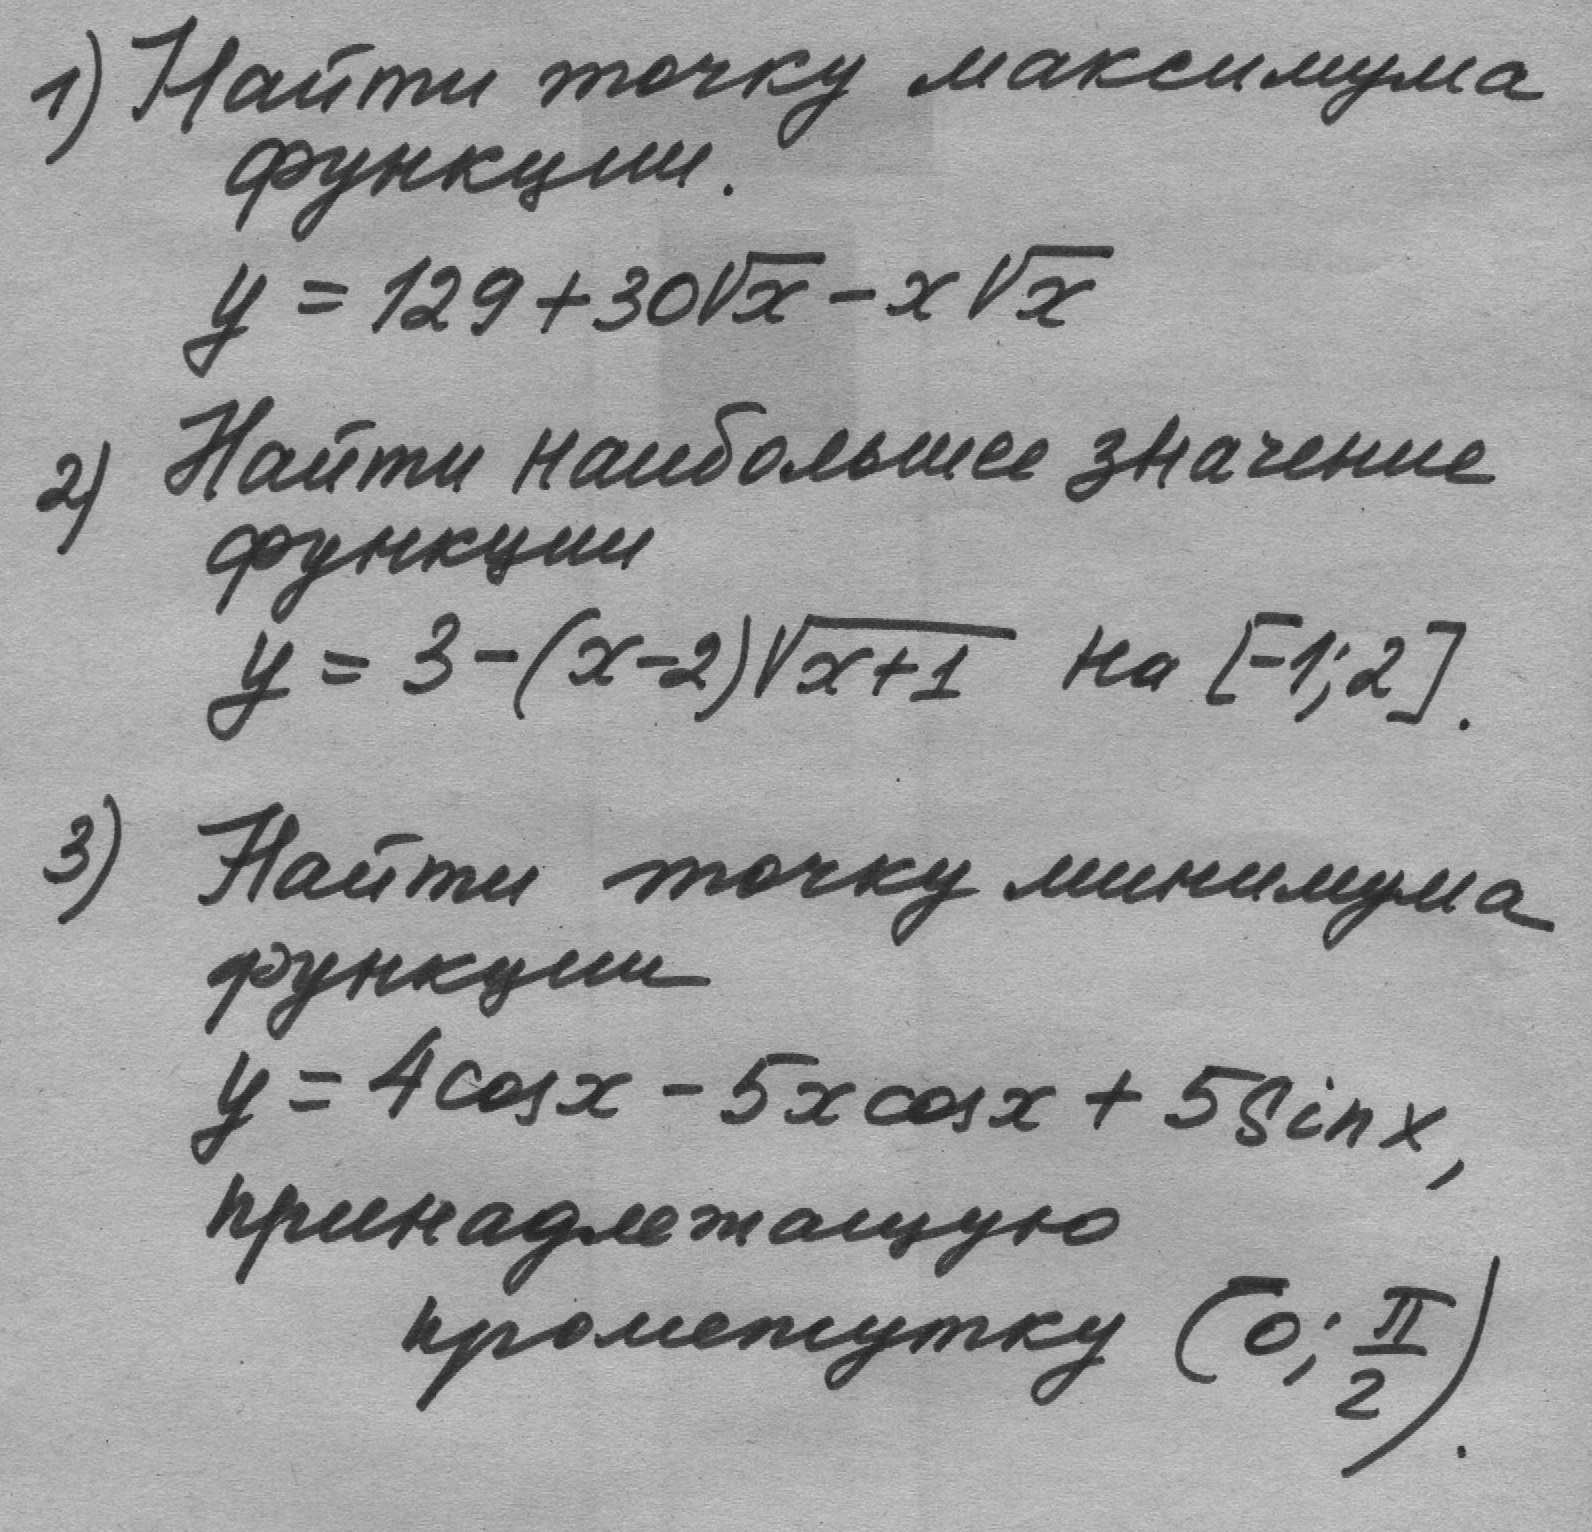 1) Найти точку максимума
функции.
y = 129 + 30√x - x√x
2) Найти наибольшее значение
функции
y = 3 - (x-2)√x+1 на [-1; 2].
3) Найти точку минимума
функции
y = 4cosx - 5x cosx + 5 sinx,
принадлежащую
промежутку (0; π/2).